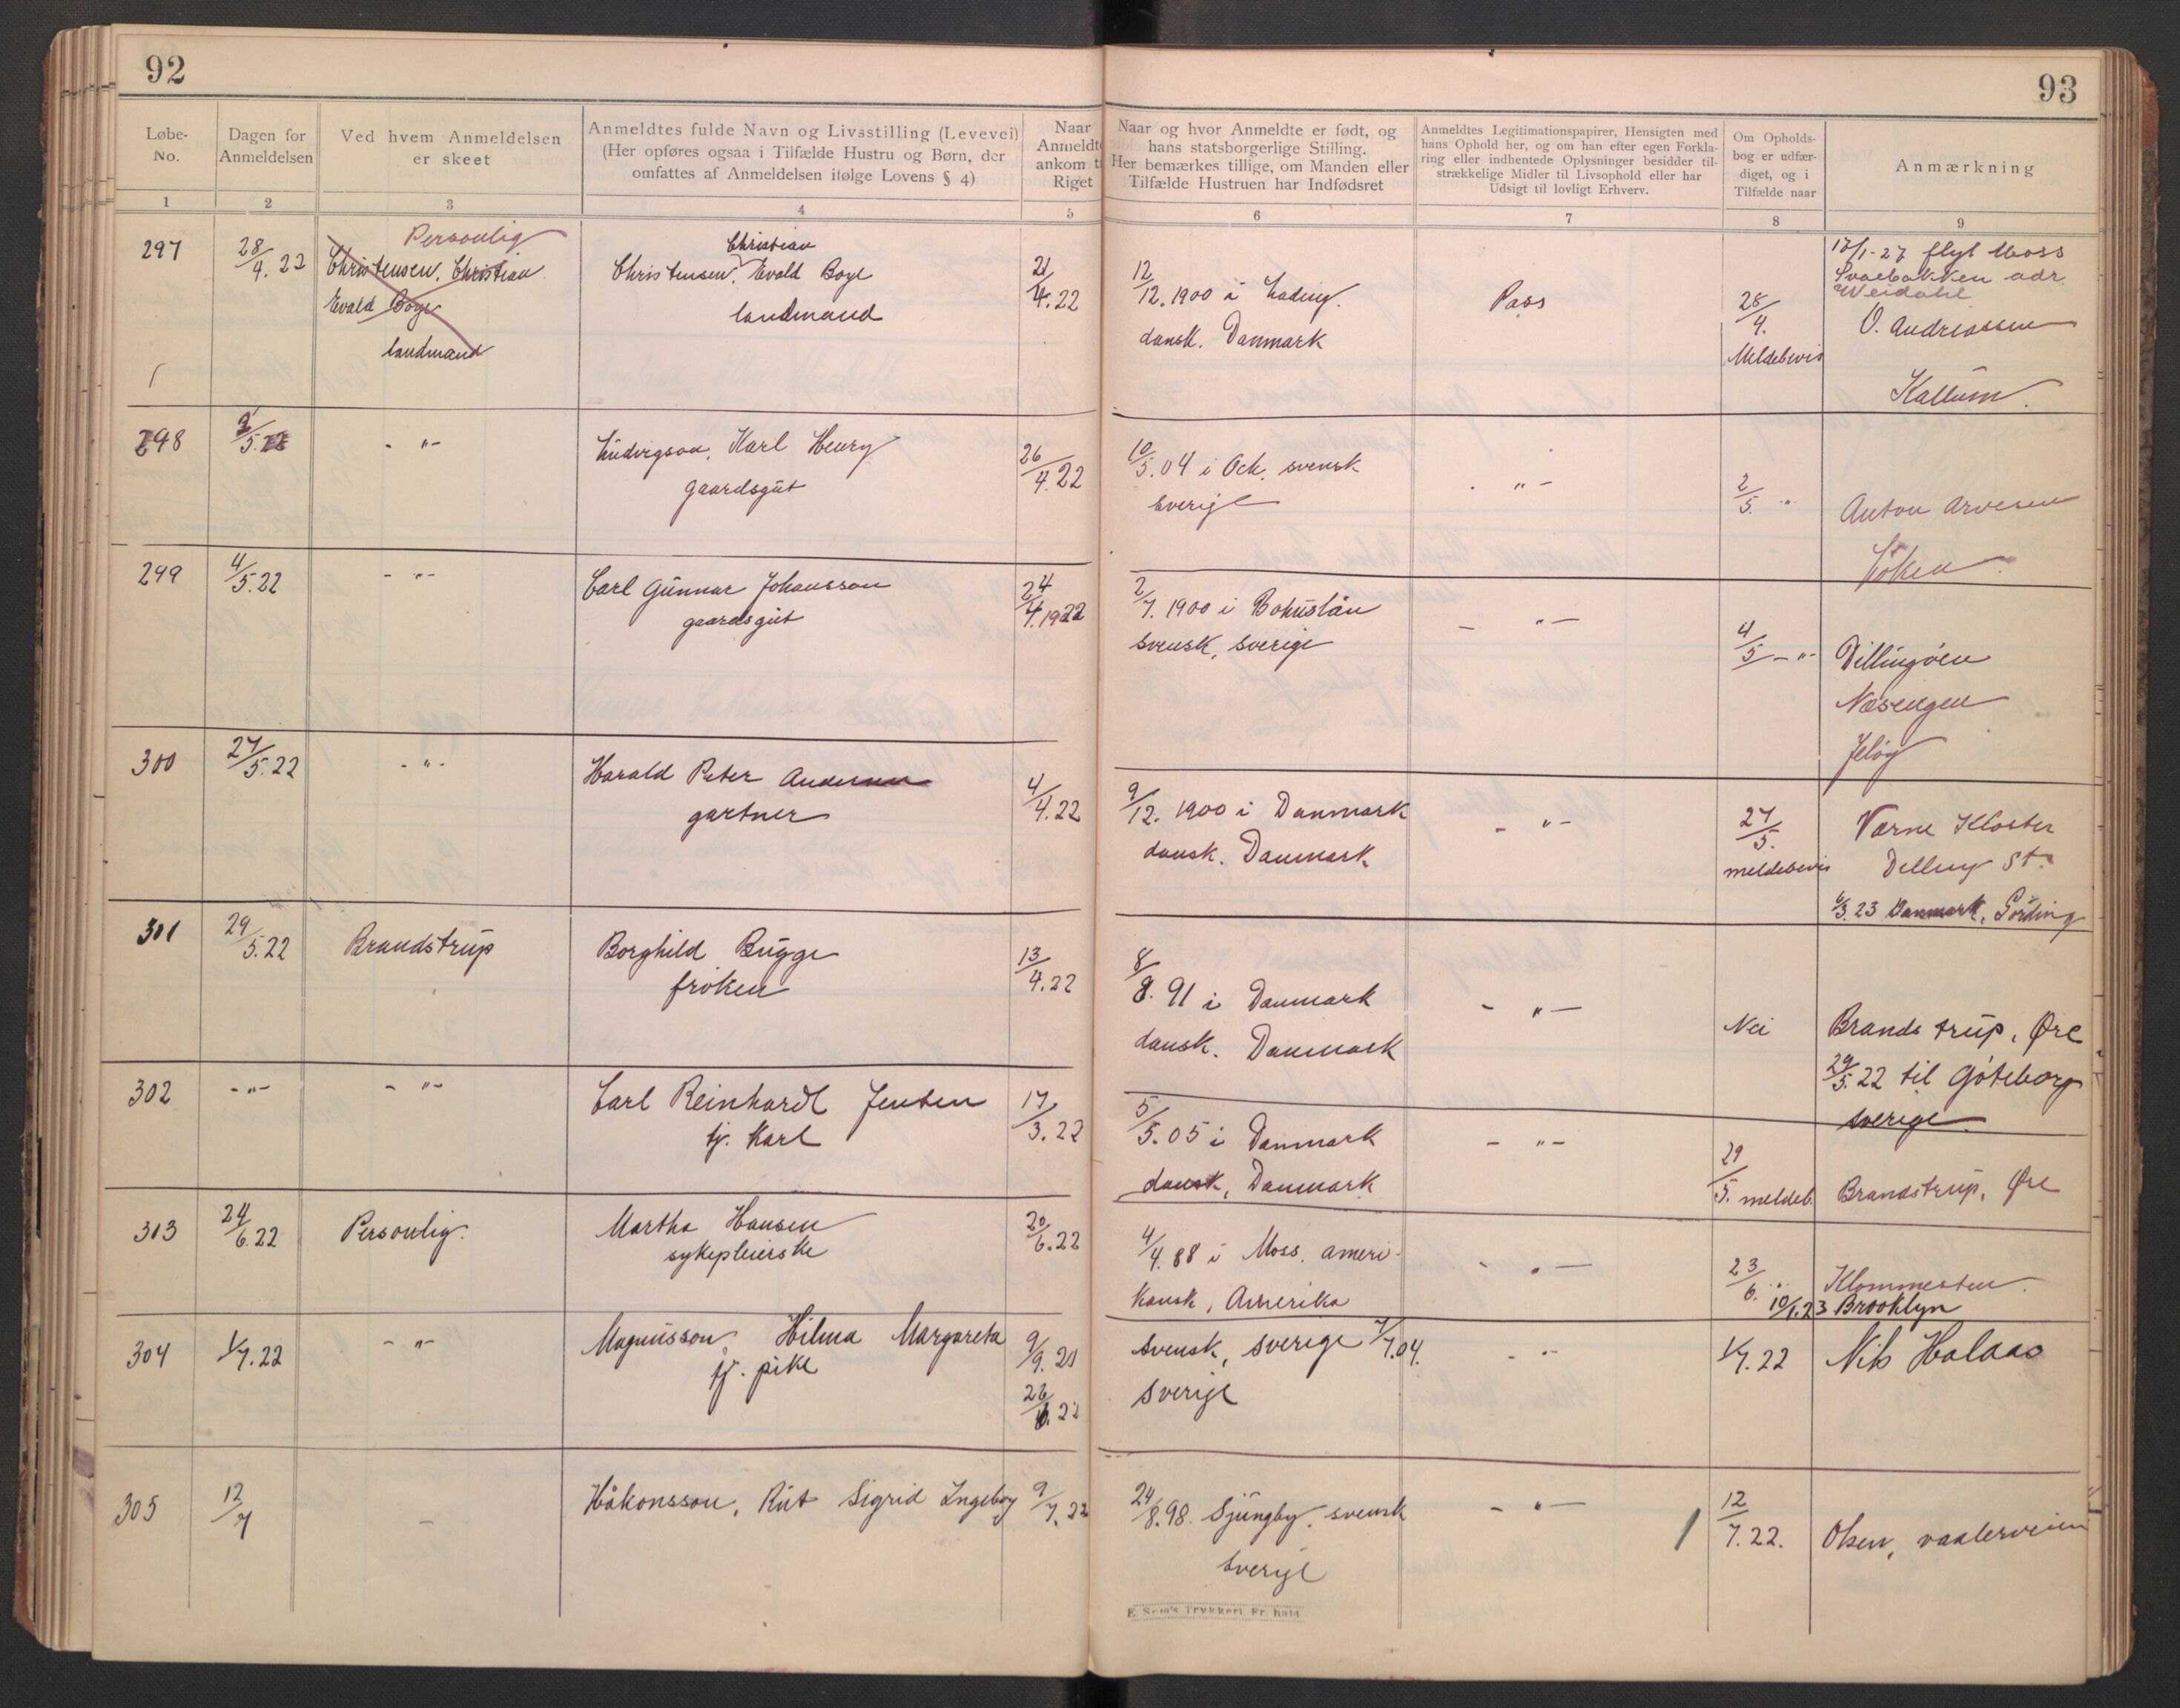 92
93
Løbe-No.
Dagen for Anmeldelsen
Ved hvem Anmeldelsen er skeet
Anmeldtes fulde Navn og Livsstilling (Levevei)
(Her opføres ogsaa i Tilfælde Hustru og Børn, der
omfattes af Anmeldelsen ifølge Lovens § 4)
Naar
Anmeldte
ankom ti
Riget
Naar og hvor Anmeldte er født, og
hans statsborgerlige Stilling.
Her bemærkes tillige, om Manden eller
Tilfælde Hustruen har Indfødsret
Anmeldtes Legitimationspapirer, Hensigten med
hans Ophold her, og om han efter egen Forkla-
ring eller indhentede Oplysninger besidder til-
strækkelige Midler til Livsophold eller har
Udsigt til lovligt Erhverv.
Om Opholds-
bog er udfær-
diget, og i
Tilfælde naar
Anmærkning
1 2 3 4 5 6 7 8 9
297
28/4.22
Personlig
Christensen, Christian
Evald Boye
landmand
Christian
Christensen, Evald Boye
landmand
21/4.22
12/12.1900 i Lading.
dansk. Danmark
Pass
28/4.
Meldebevis
17/1-27 flyt Moss
adr.
O. Andreassen
Kallum.
298
2/5.22
- " -
Ludvigson, Karl Henry
gaardsgut
26/4.22
10/5.04 i Ock. svensk
Sverige
- " -
2/5. "
Anton Arvesen
299
4/5.22
- " -
Carl Gunnar Johansson
gaardsgut
24/4.1922
2/7.1900 i Bohuslån
svensk, Sverige
- " -
4/5 - " -
Dillingöen
Nesengen
Jeløy
300
27/5.22
- " -
Harald Peter Andersen
gartner
4/4.22
9/12.1900 i Danmark
dansk. Danmark
- " -
27/5.
meldebevis
Varne Kloster
Dilling St.
6/3.23 Danmark, Görding
301
29/5.22
Brandstrup
Borghild Bugge
fröken
13/4.22
8/8.91 i Danmark
dansk. Danmark
- " -
Nei
Brandstrup, Øre
29/5.22 til Göteborg
Sverige
302
- " -
- " -
Carl Reinhardt Jensen
tj. Karl
17/3.22
5/5.05 i Danmark
dansk, Danmark
- " -
29/5. meldeb.
Brandstrup, Øre
303
24/6.22
Personlig.
Martha Hansen
sykepleierske
20/6.22
4/4.88 i Moss. ameri-
kansk, Amerika
- " -
23/6. "
Klommesten
10/1.23 Brooklyn
304
1/7.22
- " -
Magnusson, Hilma Margareta
tj. pike
9/9.21
26/6.22
svensk, Sverige 7/7.04.
Sverige
- " -
1/7.22
Nils Holaas
305
12/7
-
Håkonsson, Rut Sigrid Ingeborg
9/7.22
24/8.98. Sjüngby. svensk
Sverige
- " -
12/7.22.
Olsen, vaalerveien
E. Sem's Trykkeri, Fr.hald